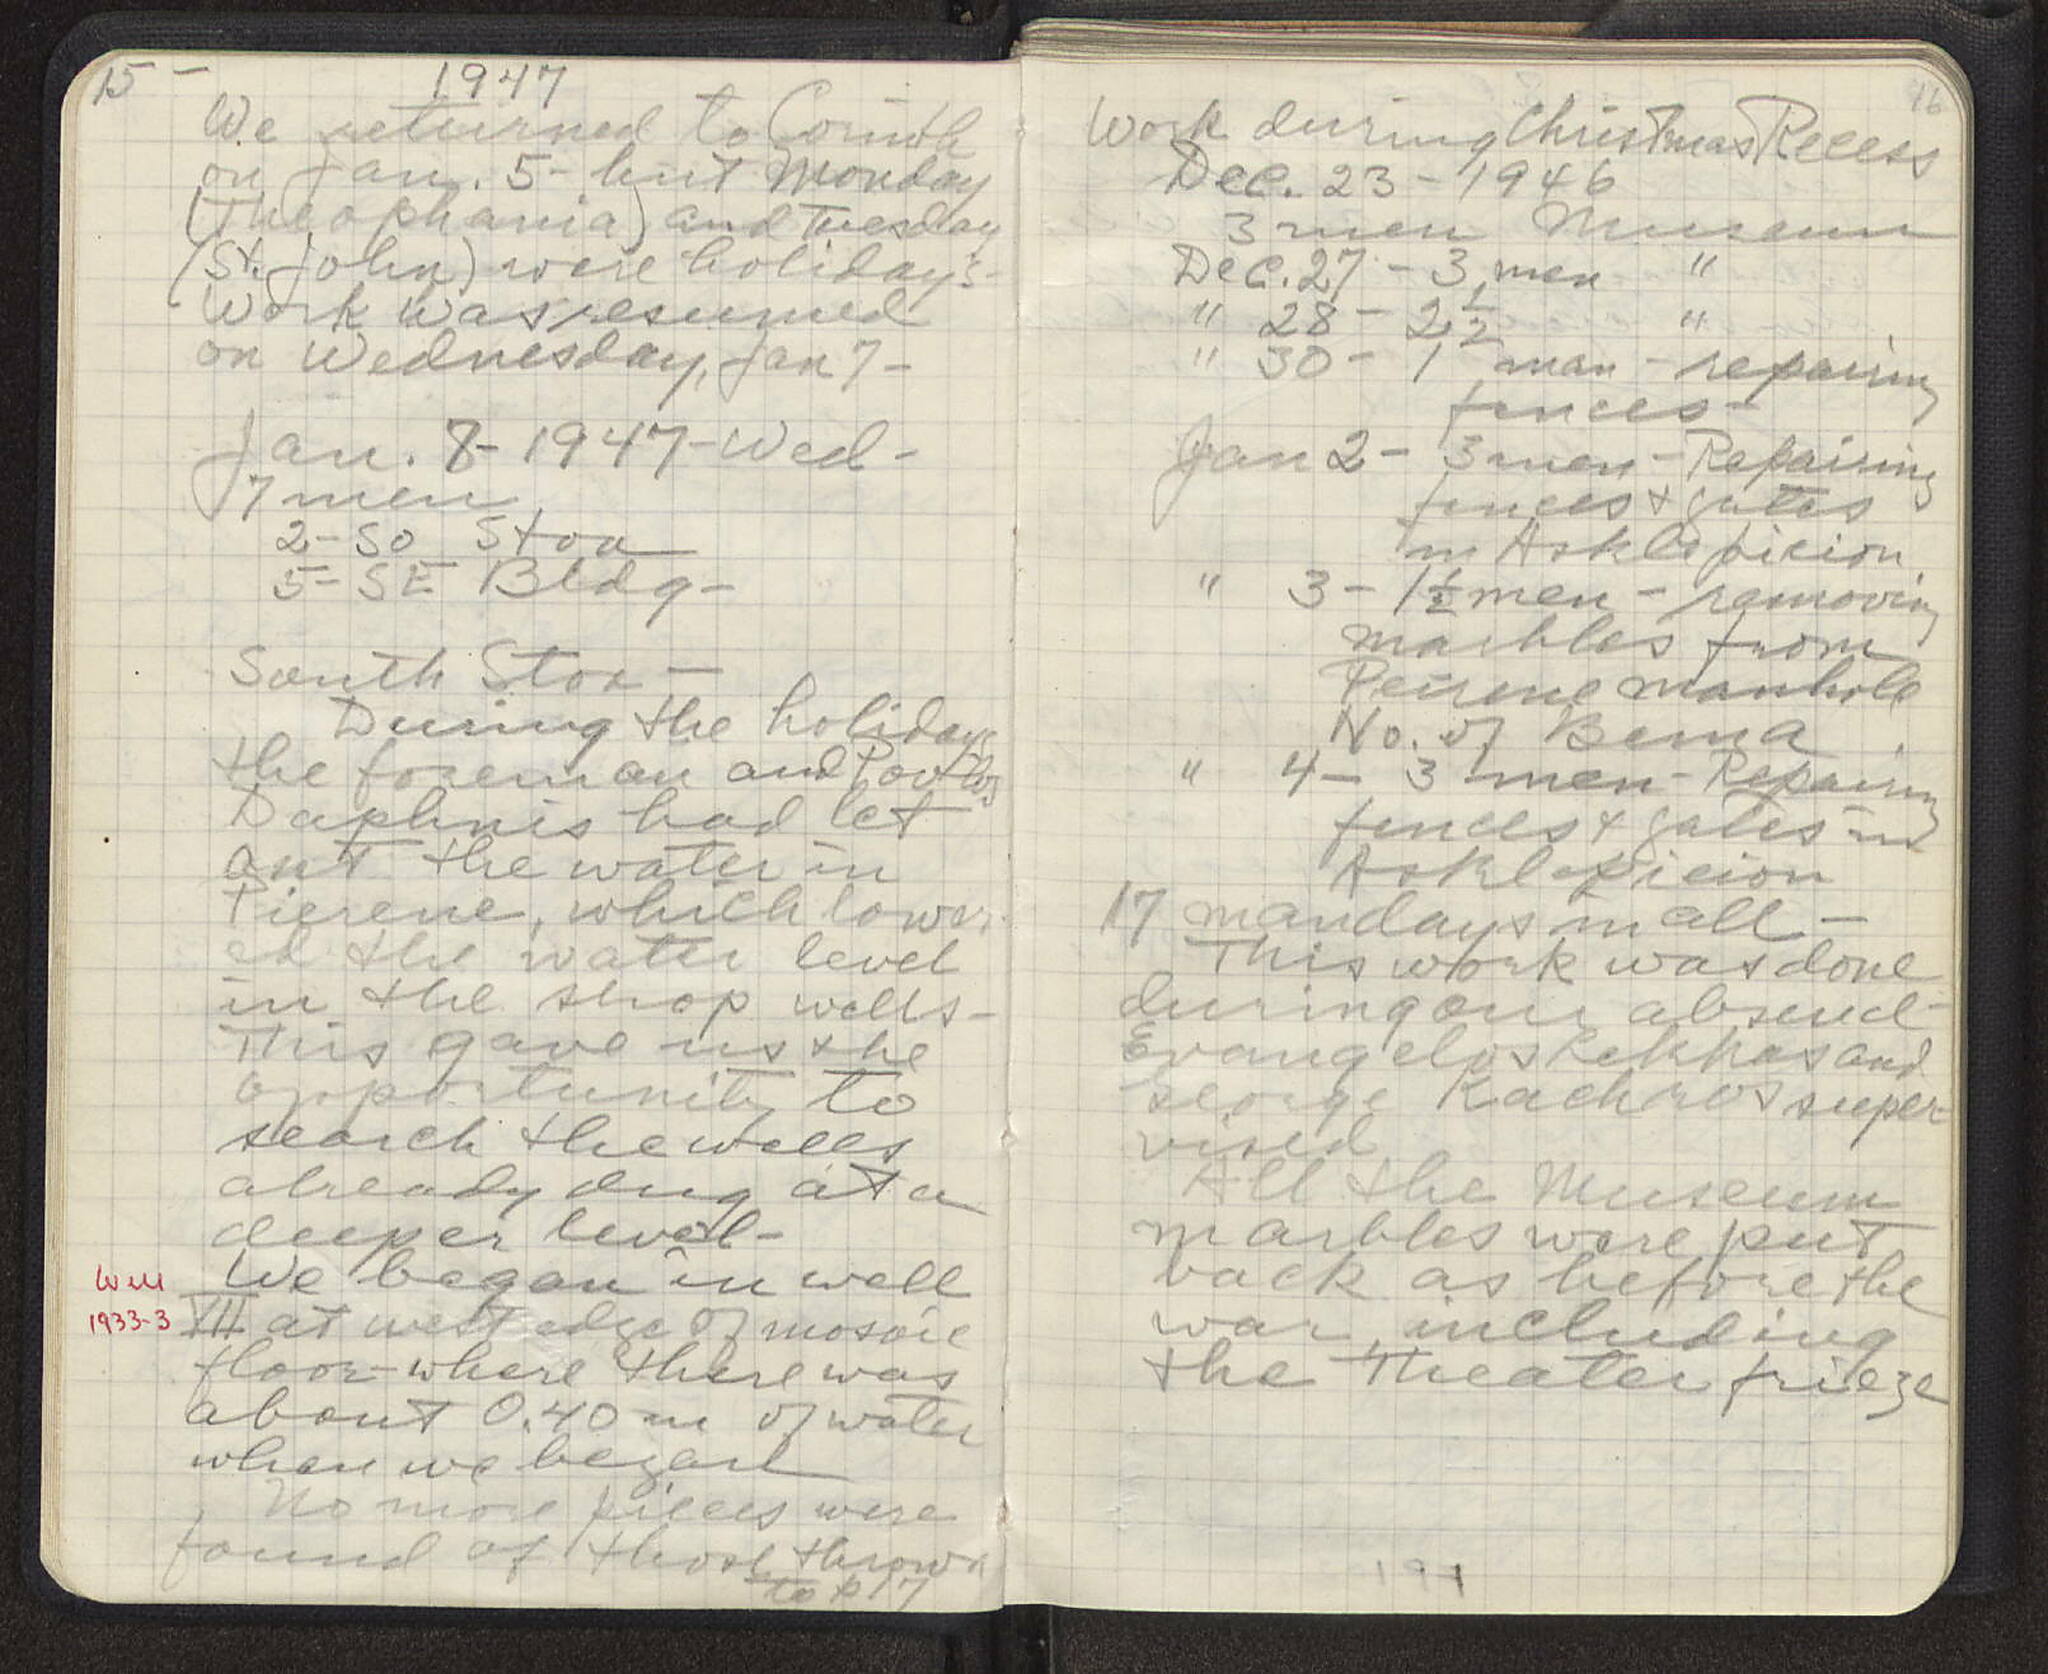 15 -
1947
We returned to Corinth
on Jan. 5 - but Monday
(Theophania) and Tuesday
(St. John) were holidays -
Work was resumed
on Wednesday, Jan 7 -
Jan. 8 - 1947 - Wed -
7 men
2 - So Stoa
5 - SE Bldg -
South Stoa -
During the holidays
the foreman and
Daphnis had let
out the water in
Pierene, which lower-
ed the water level
in the shop wells -
This gave us the
opportunity to
search the wells
already dug at a
deeper level -
We began in well
Well
1933-3
VII at west edge of mosaic
floor - where there was
about 0.40 m of water
when we began
No more pieces were
found of those thrown
to p 17
16
Work during Christmas Recess
Dec. 23 - 1946
3 men Museum
Dec. 27 - 3 men "
" 28 - 2 1/2 "
" 30 - 1 man - repairing
fences -
Jan 2 - 3 men - Repairing
fences & gates
in Asklepieion
" 3 - 1 1/2 men - removing
marbles from
Peirene manhole
No. of Bema
" 4 - 3 men - Repairing
fences & gates in
Asklepieion
17 mandays in all -
This work was done
during our absence -
Evangelos Lekkas and
George Kachros super-
vised
All the Museum
marbles were put
back as before the
war, including
the Theater frieze
191